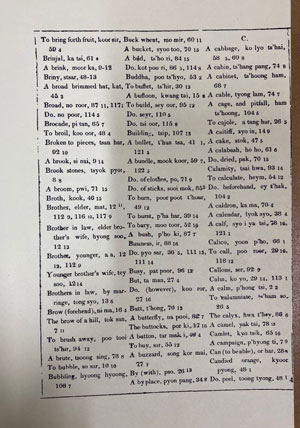 To bring forth fruit, koor sir,
59 4
Brinjal, ka tai, 61 8
A brink, moor ka, 9-12
Briny, star, 48-13
A broad brimmed hat, kat,
45 3
Broad, no roor, 87 11, 117 1
Do. no poor, 114 5
Brocade, pi tan, 65 7
To broil, koo oor, 48 4
Broken to pieces, tsun har,
92 10
A brook, si nai, 9 14
Brook stones, tayok pyor,
8 8
A broom, pwi, 71 15
Broth, kook, 46 15
Brother, elder, mat, 12 11,
112 9, 116 11, 117 9
Brother in law, elder bro-
ther's wife, byong soo,
12 12
Brother, younger, a a, 12
12, 112 9
Younger brother's wife, tey
soo, 12 14
Brothers in law, by mar-
riage, tong syo, 13 6
Brow (forehead), ni ma, 16 4
The brow of a hill, tok sun,
7 11
To brush away, poo tooi
ta'har, 94 12
A brute, tsoong sing, 78 8
To bubble, so sar, 10 10
Bubbling, hyoong hyoong,
106 7
Buck wheat, mo mir, 60 11
A bucket, syoo too, 70 15
A bud, ts'ho ri, 84 15
Do. kot poo ri, 86 4, 114 8
Buddha, poo ts'hyo, 53 2
To buff, ta'hir, 30 12
A buffoon, kwang tai, 15 8
To build, sey oor, 95 12
Do. seyr, 110 5
Do. tai oor, 115 8
Building, tsip, 107 12
A bullet, t'han tsa, 41 1,
121 8
A bundle, mook koor, 59 7,
121 2
Do. of clothes, po, 71 9
Do. of sticks, sooi mok, 85 3
To burn, poot poot t'hoor,
49 12
To burst, p'ha har, 39 14
To bury, moo toor, 52 15
A bush, p'ho ki, 87 7
Business, ir, 88 16
Do. pyo sar, 36 5, 111 11,
111 14
Busy, pat poor, 96 12
But, ta man, 27 4
Do. (however), koo ror,
27 16
Butt, t'hong, 70 12
A butterfly, na pooi, 82 7
The buttocks, poo ki, 17 16
A button, tar mai ki, 46 4
To buy, sar, 55 12
A buzzard, song kor mai,
77 7
By (with), poo, 26 15
A byplace, pyon pang, 34 2
C.
A cabbage, ko lyo ta'hai,
58 5, 60 8
A cabin, ts'hang pang, 74 8
A cabinet, ta'hoong ham,
68 7
A cable, tyong lam, 74 7
A cage, and pitfall, ham
ta'hoong, 104 5
To cajole, a tang har, 26 5
A caitiff, syo in, 14 9
A cake, stok, 47 5
A calabash, ho ho, 61 6
Do. dried, pak, 70 15
Calamity, tsai hwa, 93 14
To calculate, heym, 54 12
Do. beforehand, ey t'hak,
104 2
A caldron, ka ma, 70 4
A calendar, lyok syo, 38 4
A calf, syo i ya tsi, 78 16,
121 1
Calico, yoon p'ho, 66 1
To call, poo roor, 29 16,
118 12
Callous, ser, 92 9
Calm, ko yo, 29 11, 113 1
A calm, p'hong tai, 2 2
To calumniate, ts'ham so,
26 6
The calyx, hwa t'hey, 86 6
A camel, yak tai, 78 12
Camlet, kyo tsik, 65 16
A campaign, p'hyong ti, 7 9
Can (to be able), or bar, 28 6
Candied orange, kyoor
pyong, 48 1
Do. peel, toong tyong, 48 1